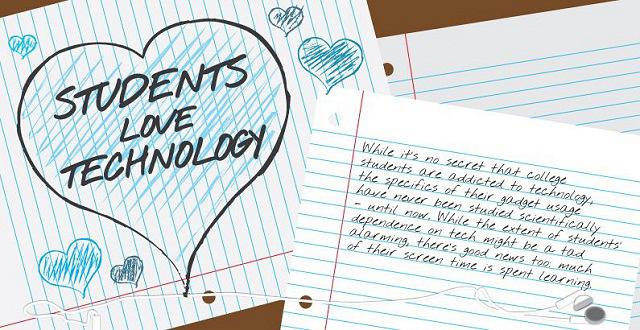 STUDENTS
LOVE
TECHNOLOGY
While it's no secret that college
students are addicted to technology,
the specifics of their gadget usage
have never been studied scientifically
- until now. While the extent of students'
dependence on tech might be a tad
alarming, there's good news too: much
of their screen time is spent learning.